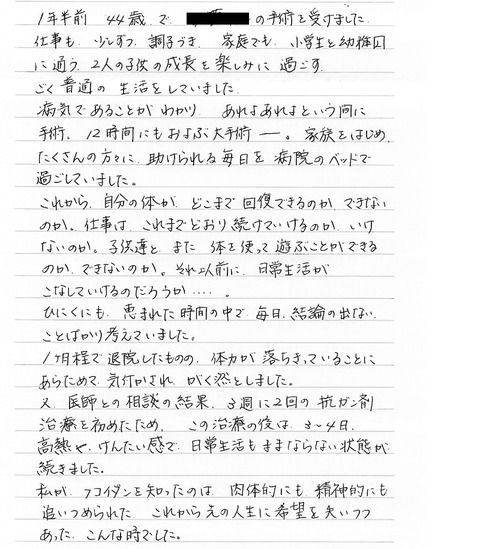 1年半前 44歳で の手術を受けました。
仕事も、少しずつ調子づき、家庭でも、小学生と幼稚園
に通う 2人の子供の成長を楽しみに 過ごす
ごく普通の 生活をしていました。
病気であることがわかり、あれよあれよという間に
手術。12時間にもおよぶ大手術ー。家族をはじめ、
たくさんの方々に、助けられる毎日を 病院のベッドで
過ごしていました。
これから、自分の体が、どこまで回復できるのか、できない
のか。仕事は、これまでどおり続けていけるのか、いけ
ないのか。子供達と、また 体を使って遊ぶことができる
のか、できないのか。それ以前に、日常生活が
こなしていけるのだろうか‥‥。
ひにくにも、恵まれた時間の中で、毎日、結論の出ない
ことばかり考えていました。
1ヶ月程で退院したものの、体力が落ちきっていることに
あらためて気付かされ、がく然としました。
又、医師との相談の結果、3週に2回の抗ガン剤
治療を初めたため、この治療の後は、3~4日、
高熱や、けんたい感で、日常生活もままならない状態が
続きました。
私が、フコイダンを知ったのは、肉体的にも精神的にも
追いつめられた、これから先の人生に希望を失いつつ
あった、こんな時でした。